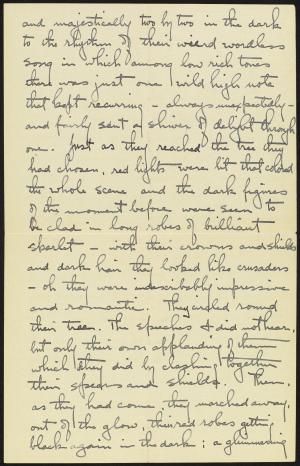 and majestically two by two in the dark
to the rhythm of their weird wordless
song in which among low rich tones
there was just one wild high note
that kept recurring - always unexpectedly -
and fairly sent a shiver of delight through
one. Just as they reached the tree they
had chosen, red lights were lit that colored
the whole scene and the dark figures
of the moment before were seen to
be clad in long robes of brilliant
scarlet - with their crowns and shields
and dark hair they looked like crusaders
- oh they were indescribably impressive
and romantic. They circled round
their tree. The speeches I did not hear,
but only their own applauding of them
which they did by clashing together
their spears and shields. Then,
as they had come, they marched away,
out of the glow, their red robes getting
black again in the dark; a glimmering